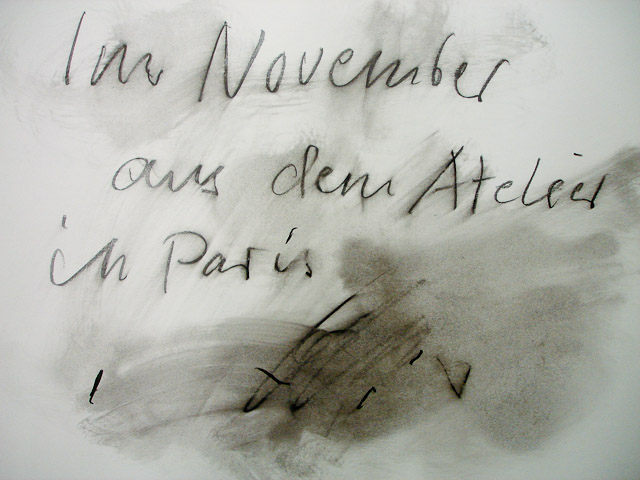 Im November
aus dem Atelier
in Paris